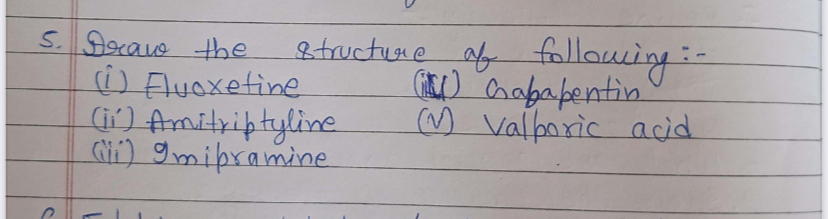 5. Draw the structure of following :-
(i) Fluoxetine (iv) Gabapentin
(ii) Amitriptyline (V) Valporic acid
(iii) Imipramine